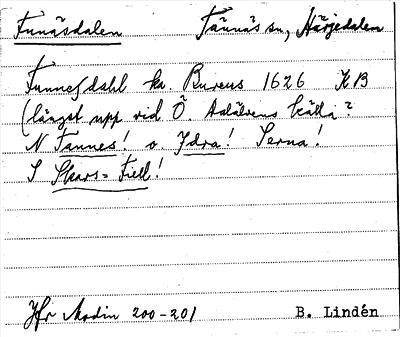 Funäsdalen Tännäs sn, Härjedalen
Funnesdahl ka Bureus 1626 KB
(längst upp vid Ö. Dalälvens källa?
N Tannes! o Jdra! Serna!
S Skars= Fiell!
Jfr Modin 200-201 B. Lindén